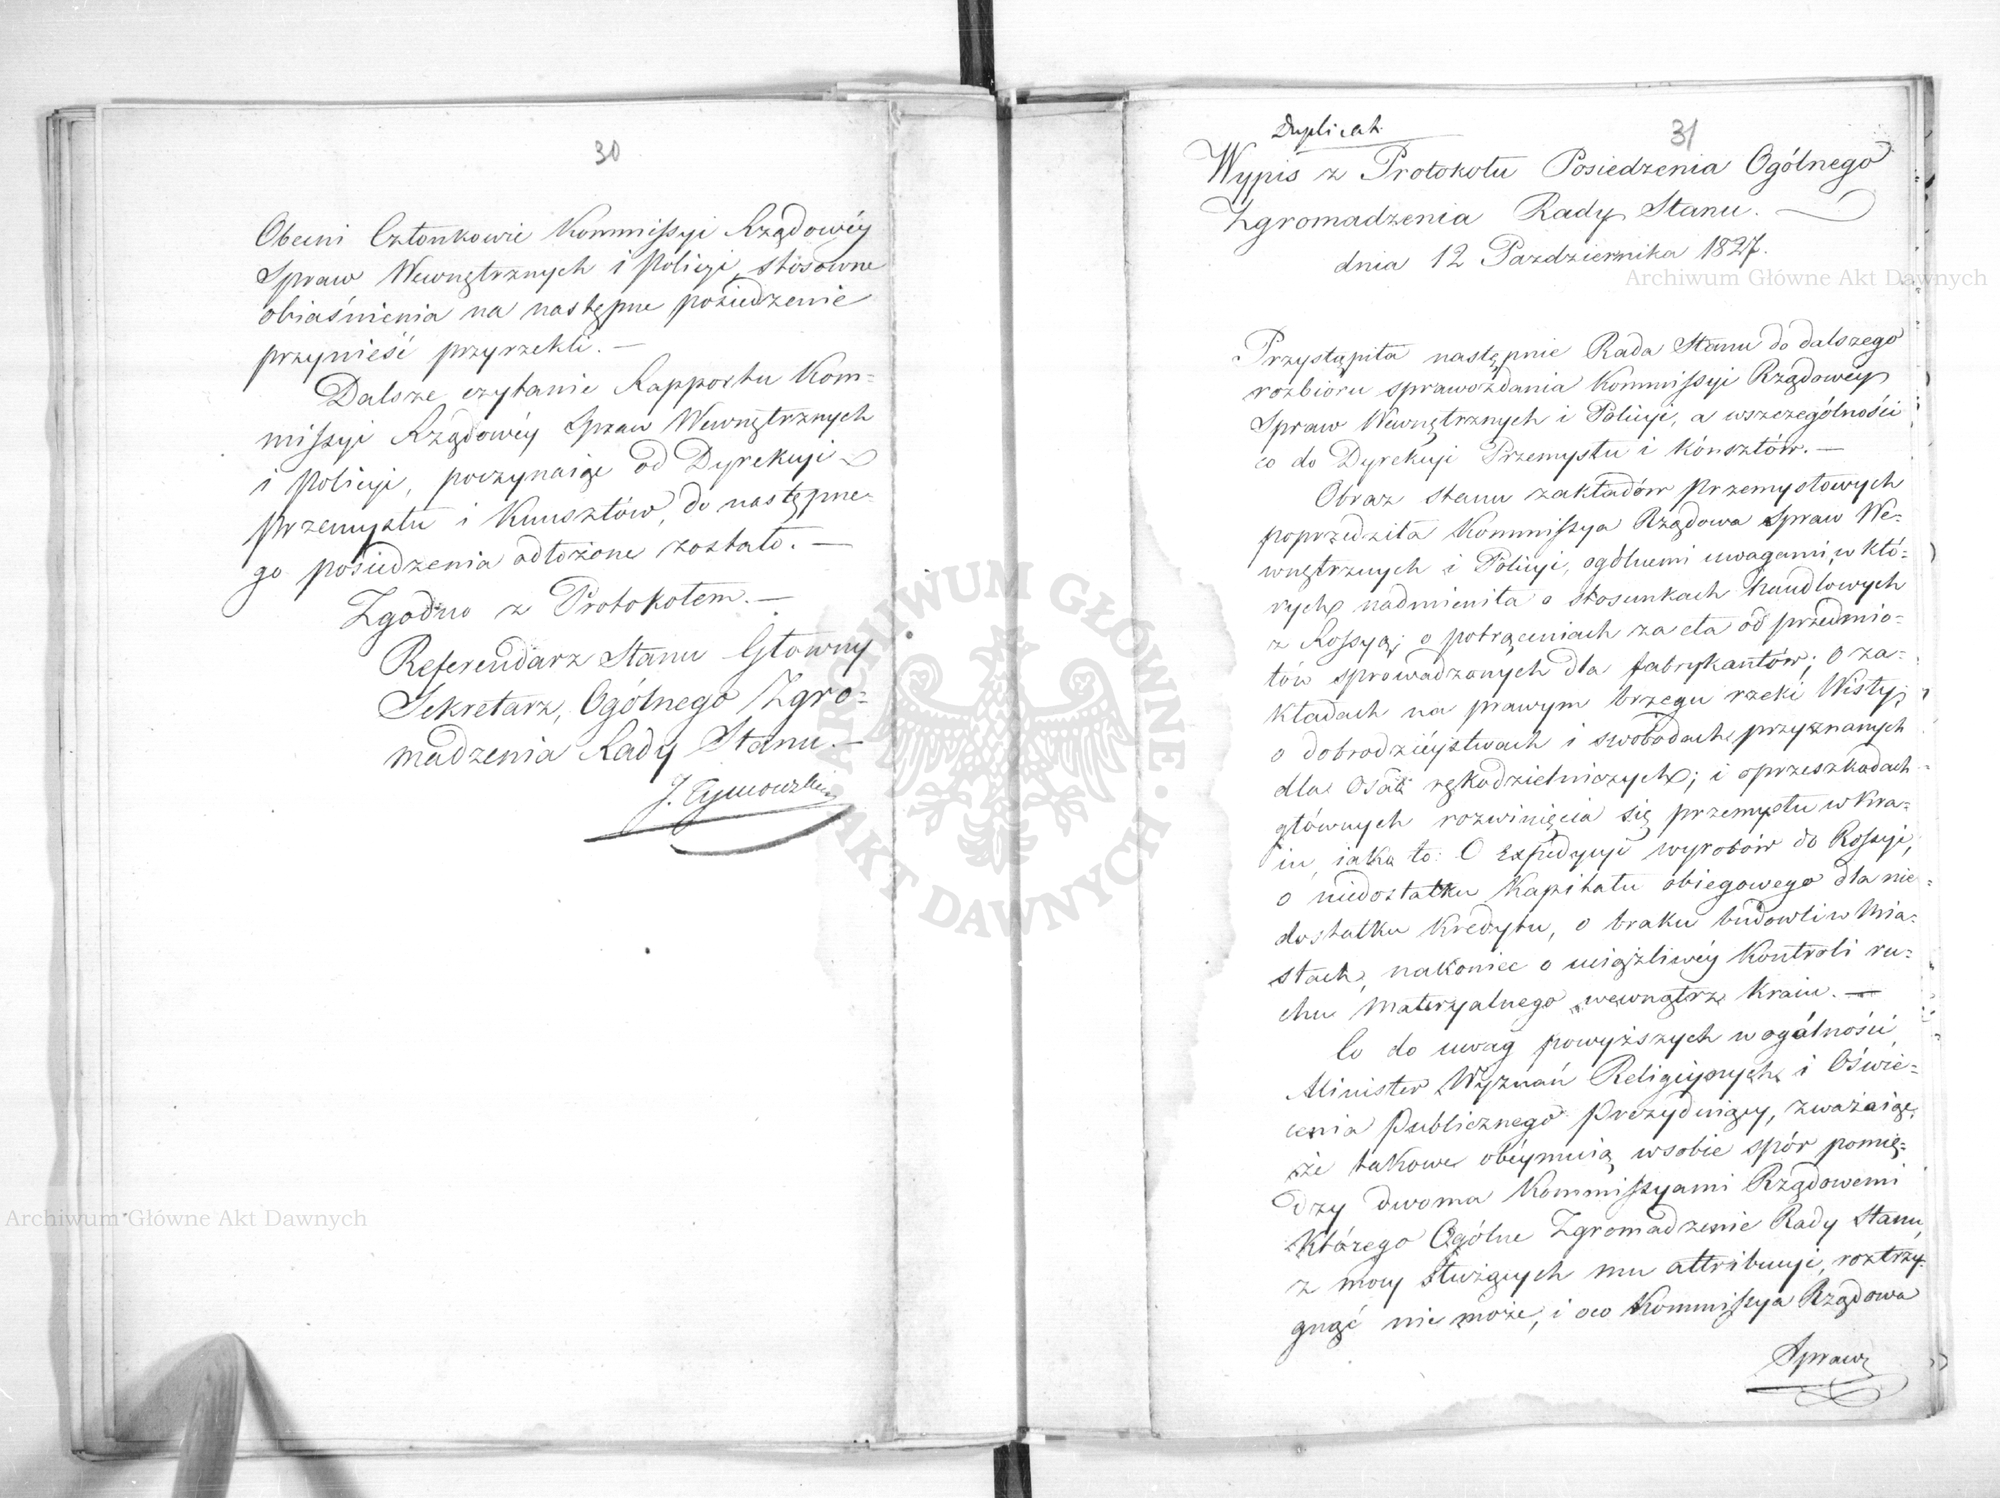 30
Obecni Członkowie Kommissyi Rządowéy
Spraw Wewnętrznych i Policyi, stosowne
obiaśnienia na następne posiedzenie
przynieść przyrzekli. —
Dalsze czytanie Rapportu Kom=
missyi Rządowéy Spraw Wewnętrznych
i Policyi, poczynaiąc od Dyrekcyi
Przemysłu i Kunsztów, do następne=
go posiedzenia odłożone zostało. —
Zgodno z Protokołem. —
Referendarz Stanu Głowny
Sekretarz, Ogólnego Zgro=
madzenia Rady Stanu. —
Duplicat.
31
Wypis z Protokołu Posiedzenia Ogólnego
Zgromadzenia Rady Stanu. —
dnia 12 Pazdziernika 1827.
Przystąpiła następnie Rada Stanu do dalszego
rozbioru sprawozdania Kommissyi Rządowey
Spraw Wewnętrznych i Policyi, a wszczególności
co do Dyrekcyi Przemysłu i Kónsztów. —
Obraz stanu zakładów przemysłowych
poprzedziła Kommissya Rządowa Spraw We=
wnętrznych i Policyi, ogólnemi uwagami, w któ=
rych nadmieniła o stosunkach handlowych
z Rossyą; o potrąceniach za cła od przedmio=
tów sprowadzonych dla fabrykantów; o za=
kładach na prawym brzegu rzeki Wisły;
o dobrodzieystwach i swobodach przyznanych
dla Osad rękodzielniczych; i o przeszkodach
głównych rozwinięcia się przemysłu w Kra=
iu, iako to: O Expedycyi wyrobów do Rossyi,
o niedostatku Kapitału obiegowego dla nie=
dostatku Kredytu, o braku budowli w Mia=
stach, nakoniec o uciążliwéy Kontroli ru=
chu Materyalnego wewnątrz Kraiu. —
Co do uwag powyższych w ogólności
Minister Wyznań Religiynych i Oświe=
cenia Publicznego Prezyduiący, zważaiąc,
że takowe obéymuią w sobie spór pomię=
dzy dwoma Kommissyami Rządowemi
Którego Ogólne Zgromadzenie Rady Stanu,
z mocy służących mu attribucyi, roztrzy=
gnąć nie może, i o co Kommissya Rządowa
Spraw
Archiwum Główne Akt Dawnych
Archiwum Główne Akt Dawnych
ARCHIWUM GŁÓWNE · AKT DAWNYCH ·